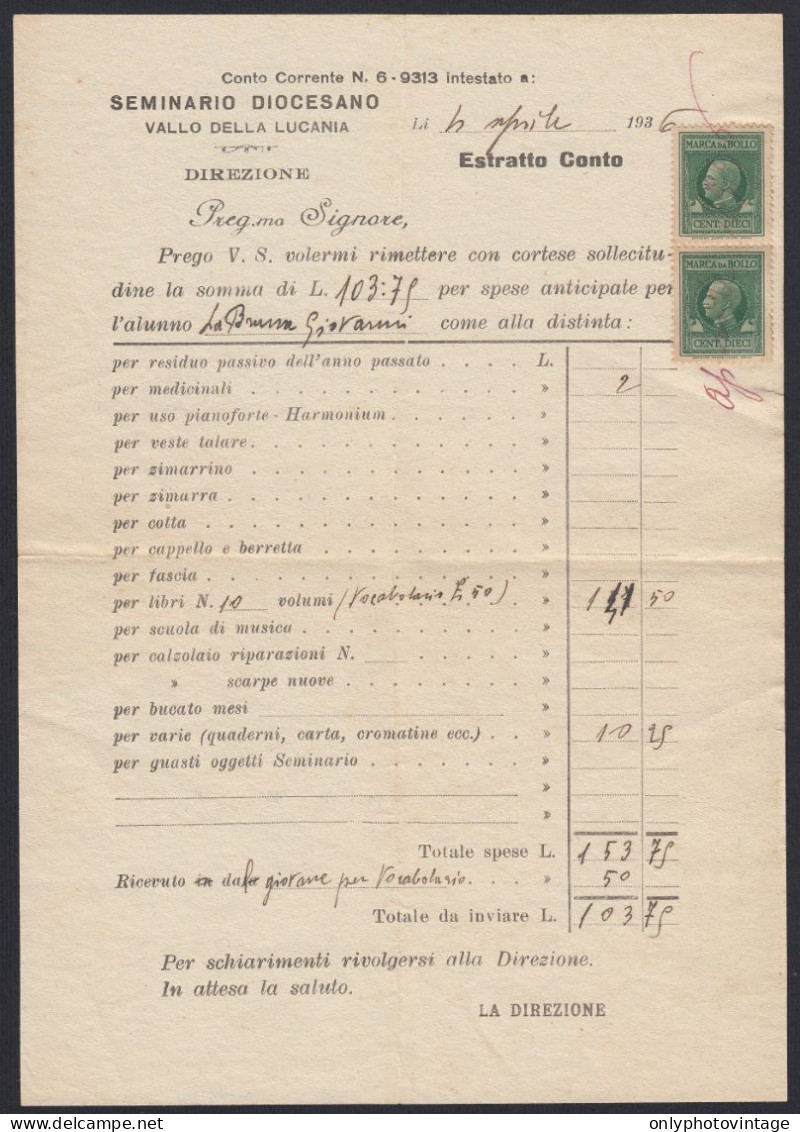 Conto Corrente N. 6 - 9313 intestato a:
SEMINARIO DIOCESANO
VALLO DELLA LUCANIA
Li aprile 1936
Estratto Conto
DIREZIONE
MARCA DA BOLLO
CENT. DIECI
MARCA DA BOLLO
CENT. DIECI
Preg.mo Signore,
Prego V. S. volermi rimettere con cortese sollecitu-
dine la somma di L. 103:75 per spese anticipate per
l'alunno La Brunna Giovanni come alla distinta:
per residuo passivo dell'anno passato . . . . L.
per medicinali . . . . . . . . . . » 2
per uso pianoforte - Harmonium . . . . . »
per veste talare . . . . . . . . . . »
per zimarrino . . . . . . . . . . »
per zimarra . . . . . . . . . . . »
per cotta . . . . . . . . . . . . »
per cappello e berretta . . . . . . . »
per fascia . . . . . . . . . . . . »
per libri N. 10 volumi (Vocabolario £ 50) » 141 50
per scuola di musica . . . . . . . . »
per calzolaio riparazioni N. . . . . . »
» scarpe nuove . . . . . . . »
per bucato mesi »
per varie (quaderni, carta, cromatine ecc.) . . » 10 25
per guasti oggetti Seminario . . . . . . »
»
»
Totale spese L. 153 75
Ricevuto in dal giovane per Vocabolario . . . » 50
Totale da inviare L. 103 75
Per schiarimenti rivolgersi alla Direzione.
In attesa la saluto.
LA DIREZIONE
www.onlyphotovintage.com
onlyphotovintage